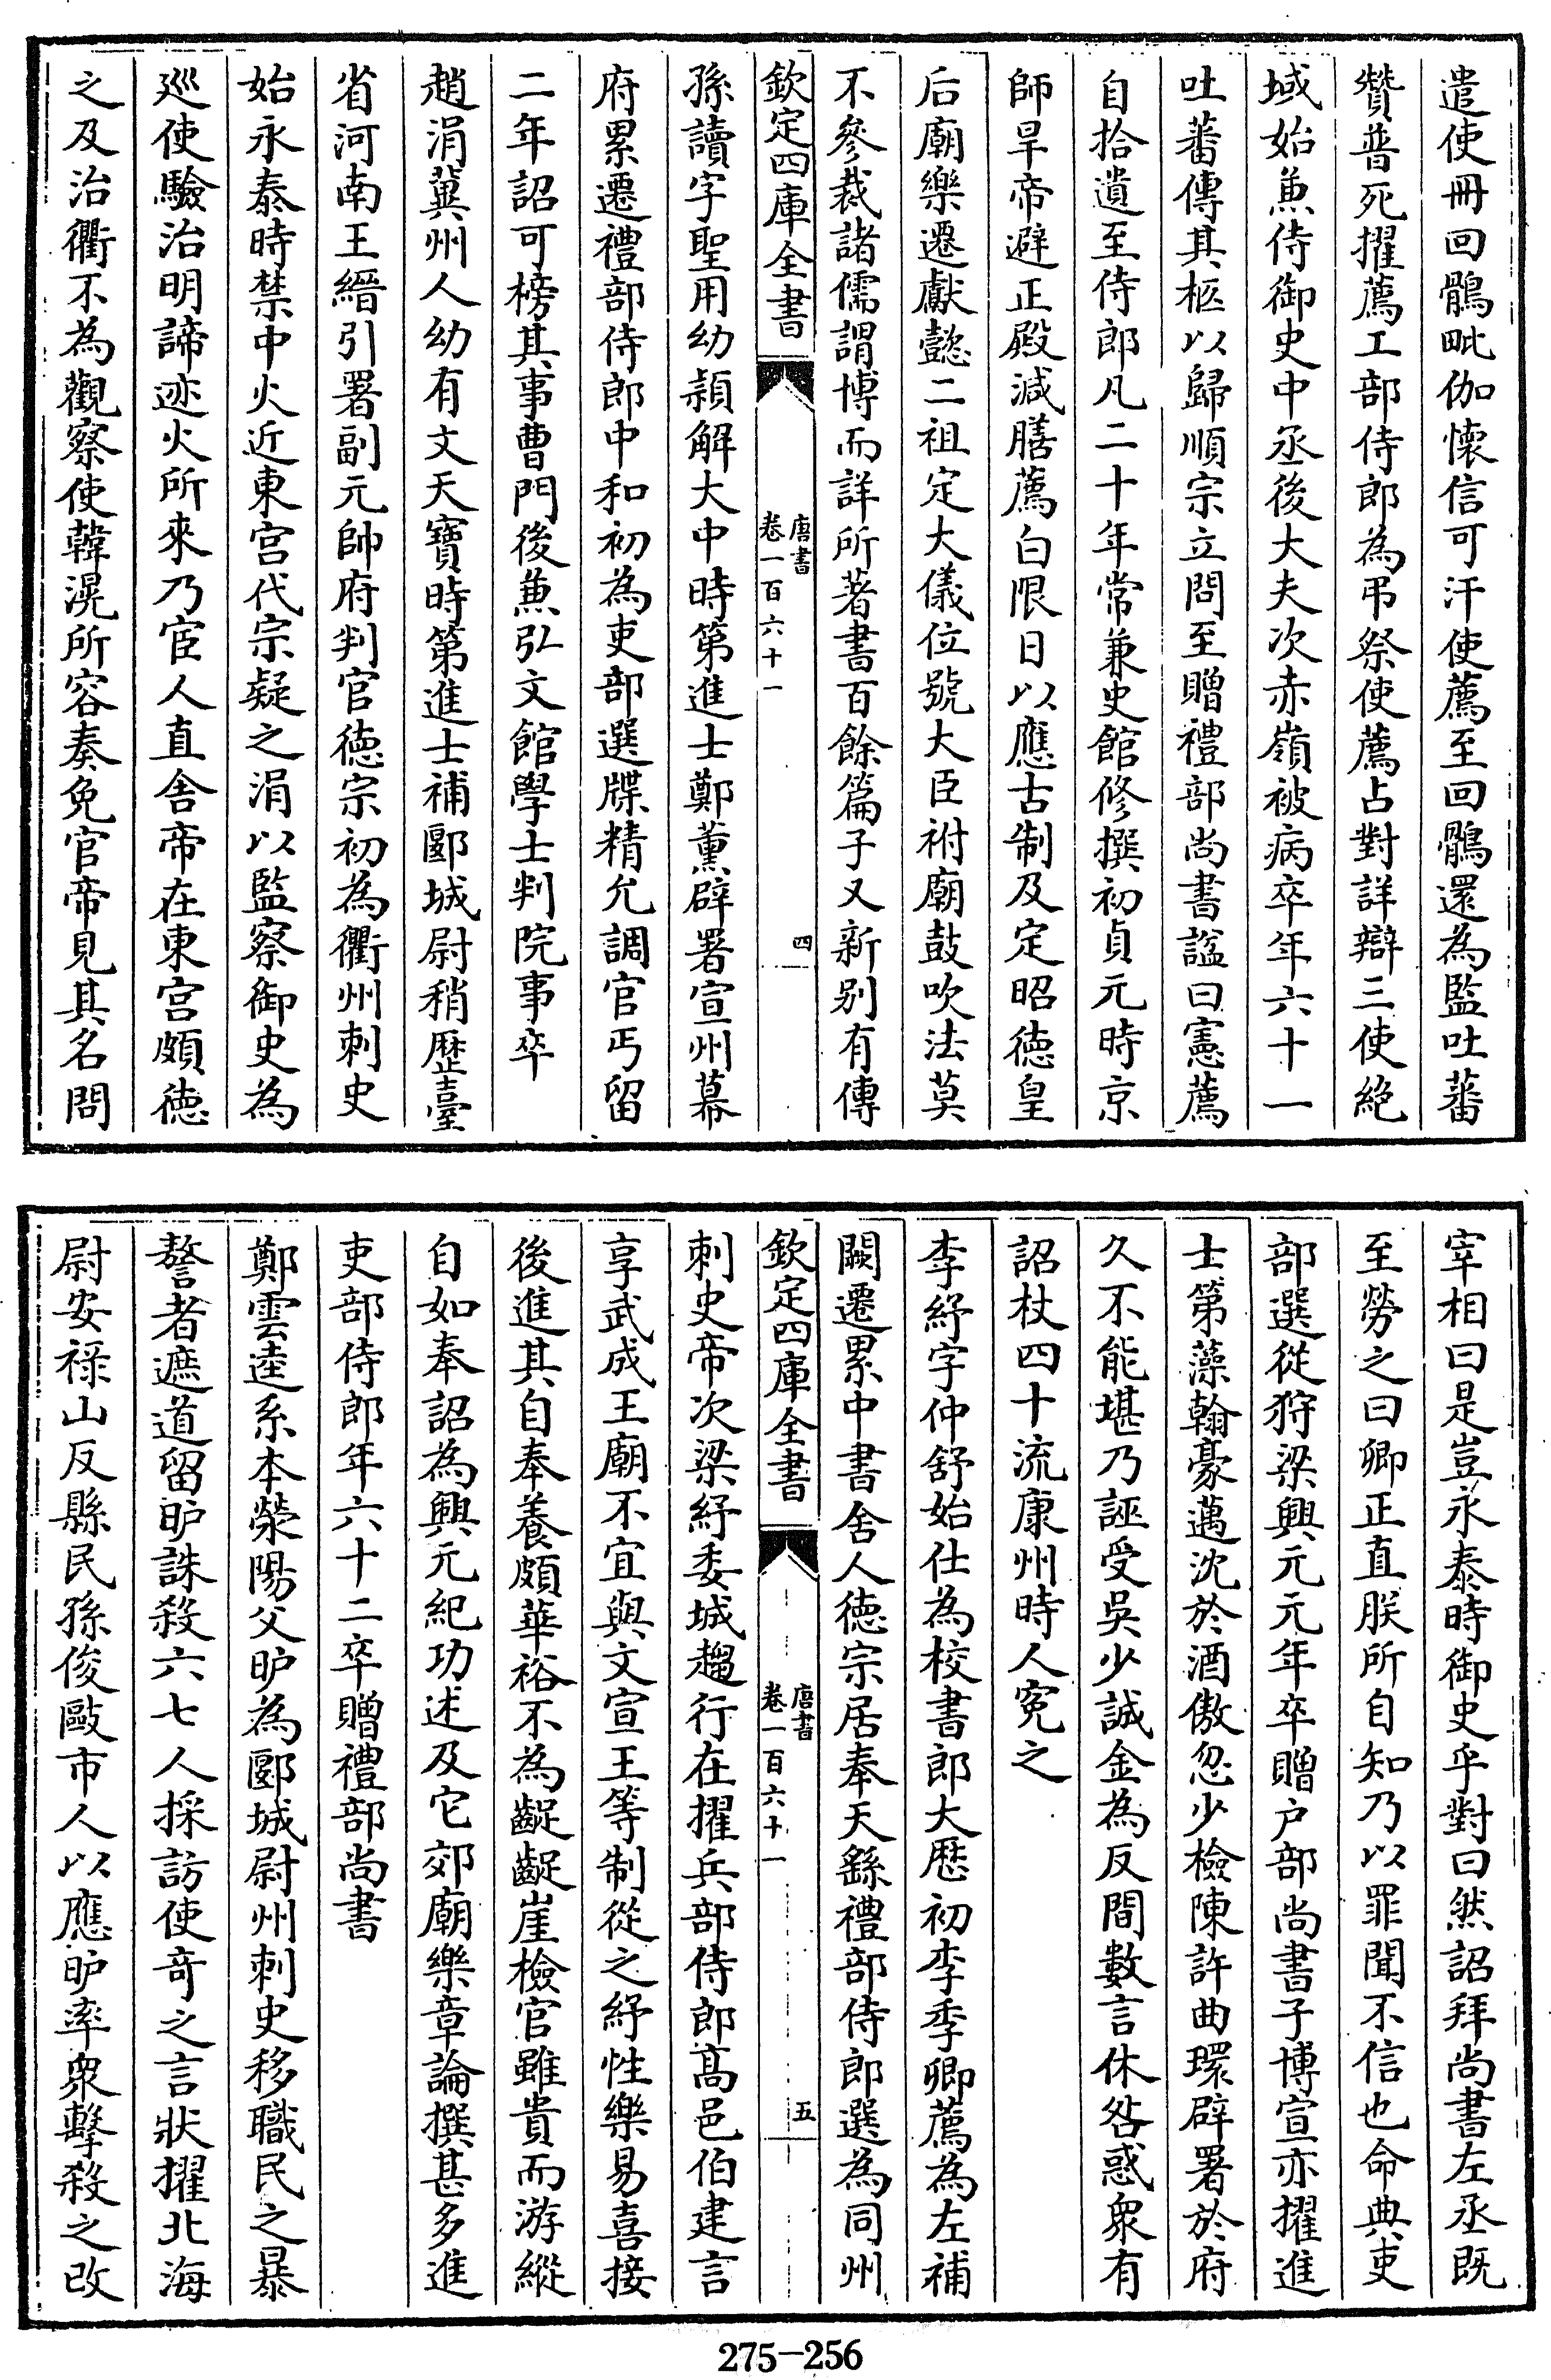 遣使冊回鶻毗伽懷信可汗使薦至回鶻還為監吐蕃
贊普死擢薦工部侍郎為弔祭使薦占對詳辯三使絕
域始兼侍御史中丞後大夫次赤嶺被病卒年六十一
吐蕃傳其柩以歸順宗立問至贈禮部尚書諡曰憲薦
自拾遺至侍郎凡二十年常兼史館修撰初貞元時京
師旱帝避正殿減膳薦白限日以應古制及定昭徳皇
后廟樂遷獻懿二祖定大儀位號大臣祔廟鼓吹法莫
不參裁諸儒謂博而詳所著書百餘篇子又新别有傳
欽定四庫全書
唐書
卷一百六十一
四
孫讀字聖用幼穎解大中時第進士鄭薰辟署宣州幕
府累遷禮部侍郎中和初為吏部選牒精允調官丐留
二年詔可榜其事曹門後兼弘文館學士判院事卒
趙涓冀州人幼有文天寶時第進士補郾城尉稍歴臺
省河南王縉引署副元帥府判官徳宗初為衢州刺史
始永泰時禁中火近東宮代宗疑之涓以監察御史為
廵使驗治明諦迹火所來乃宦人直舍帝在東宮頗徳
之及治衢不為觀察使韓滉所容奏免官帝見其名問
宰相曰是豈永泰時御史乎對曰然詔拜尚書左丞既
至勞之曰卿正直朕所自知乃以罪聞不信也命典吏
部選從狩梁興元元年卒贈户部尚書子博宣亦擢進
士第藻翰豪邁沈於酒傲忽少檢陳許曲環辟署於府
久不能堪乃誣受吳少誠金為反間數言休咎惑衆有
詔杖四十流康州時人寃之
李紓字仲舒始仕為校書郎大厯初李季卿薦為左補
闕遷累中書舍人徳宗居奉天繇禮部侍郎選為同州
欽定四庫全書
唐書
卷一百六十一
五
刺史帝次梁紓委城趨行在擢兵部侍郎髙邑伯建言
享武成王廟不宜與文宣王等制從之紓性樂易喜接
後進其自奉養頗華裕不為齪齪崖檢官雖貴而游縱
自如奉詔為興元紀功述及它郊廟樂章論撰甚多進
吏部侍郎年六十二卒贈禮部尚書
鄭雲逵系本滎陽父昈為郾城尉州刺史移職民之暴
驁者遮道留昈誅殺六七人採訪使奇之言狀擢北海
尉安祿山反縣民孫俊敺市人以應昈率衆擊殺之改
275-256